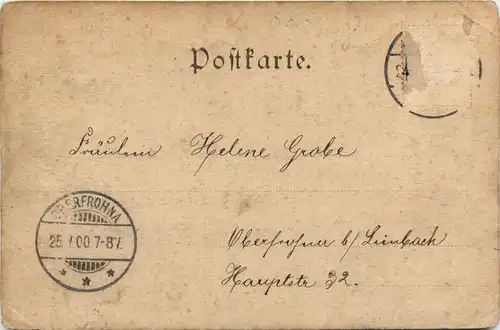 Postkarte.
Fräulein Helene Grobe
OBERFROHNA
25. 7.00 7-8V.
Oberfrohna b/ Limbach
Hauptstr 32.